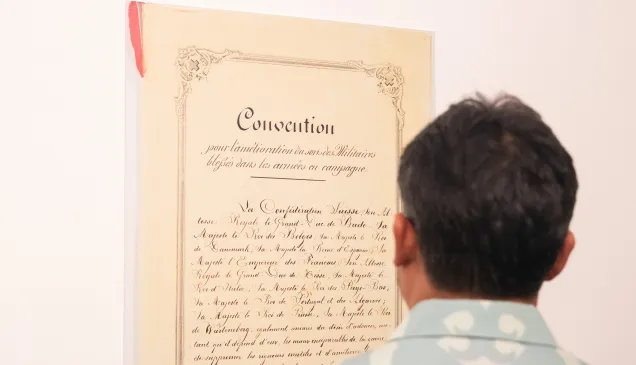 Convention
pour l'amélioration du sort des Militaires
blessés dans les armées en campagne.
La Confédération Suisse, Son Al-
tesse Royale le Grand-Duc de Bade, Sa
Majesté le Roi des Belges, Sa Majesté le Roi
de Danemark, Sa Majesté la Reine d'Espagne, Sa
Majesté l'Empereur des Français, Son Altesse
Royale le Grand Duc de Hesse, Sa Majesté le
Roi d'Italie, Sa Majesté le Roi des Pays-Bas,
Sa Majesté le Roi de Portugal et des Algarves,
Sa Majesté le Roi de Prusse, Sa Majesté le Roi
de Wurtemberg, également animés du désir d'adoucir, au-
tant qu'il dépend d'eux, les maux inséparables de la guerre
de supprimer les rigueurs inutiles et d'améliorer